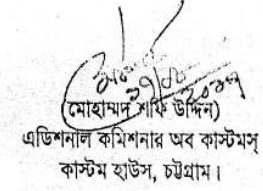 (মোহাম্মদ শফি উদ্দিন)
এডিশনাল কমিশনার অব কাস্টমস্
কাস্টম হাউস, চট্টগ্রাম।